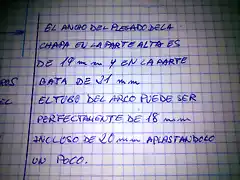 EL ANCHO DEL PLEGADO DE LA
CHAPA EN LA PARTE ALTA ES
DE 19 mm Y EN LA PARTE
BATA DE 21 mm
EL TUBO DEL ARCO PUEDE SER
PERFECTAMENTE DE 18 mm
INCLUSO DE 20 mm APLASTANDOLO
UN POCO.